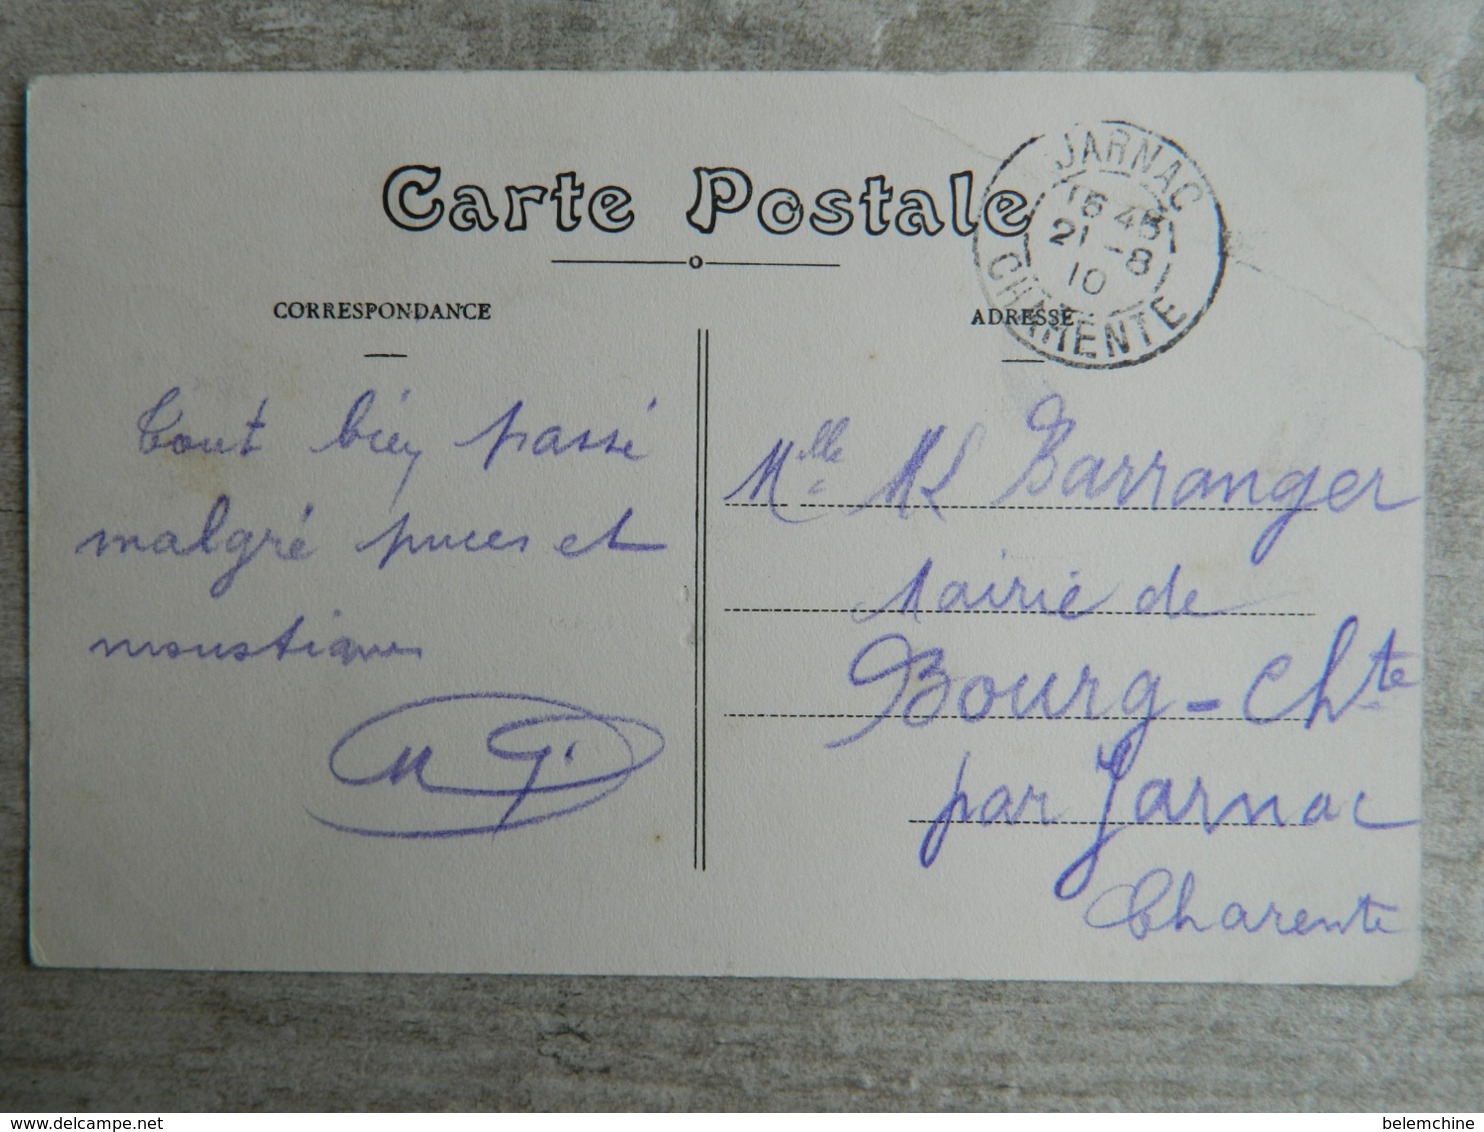 Carte Postale
CORRESPONDANCE
ADRESSE
JARNAC
16 45
21 - 8
10
CHARENTE
Tout bien passé
malgré puces et
moustiques
M G.
Mlle ML Barranger
Mairie de
Bourg - Chte
par Jarnac
Charente
belemchine